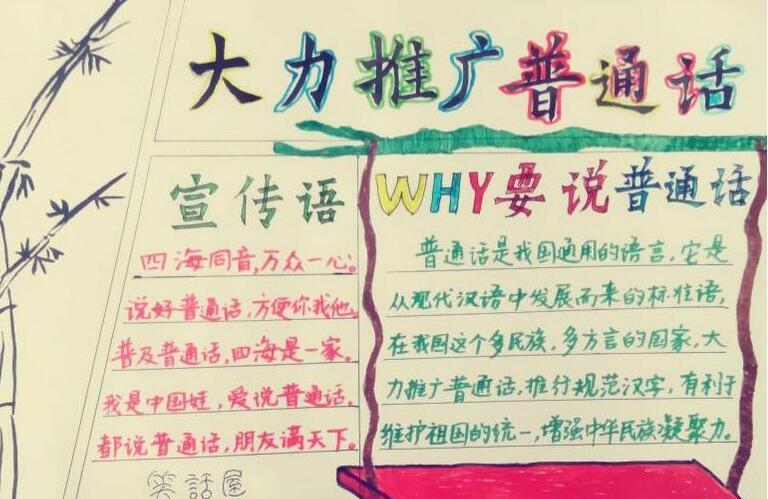 大力推广普通话
宣传语
四海同音,万众一心。
说好普通话,方便你我他,
普及普通话,四海是一家。
我是中国娃,爱说普通话,
都说普通话,朋友满天下。
笑話屋
WHY要说普通话
普通话是我国通用的语言,它是
从现代汉语中发展而来的标准语,
在我国这个多民族,多方言的国家,大
力推广普通话,推行规范汉字,有利于
维护祖国的统一,增强中华民族凝聚力。